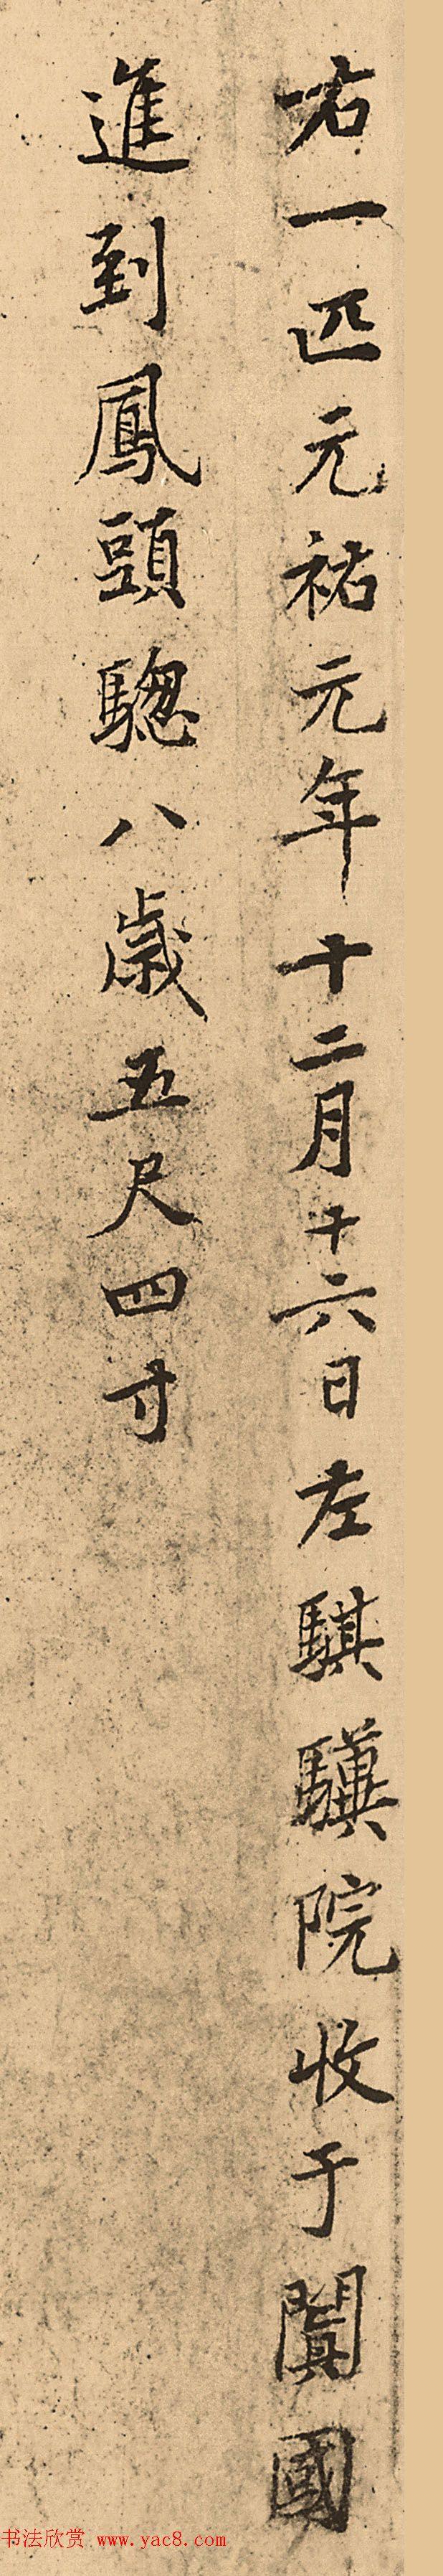 右一匹元祐元年十二月十六日左騏驥院收于闐國
進到鳳頭驄八歳五尺四寸
书法欣赏 www.yac8.com